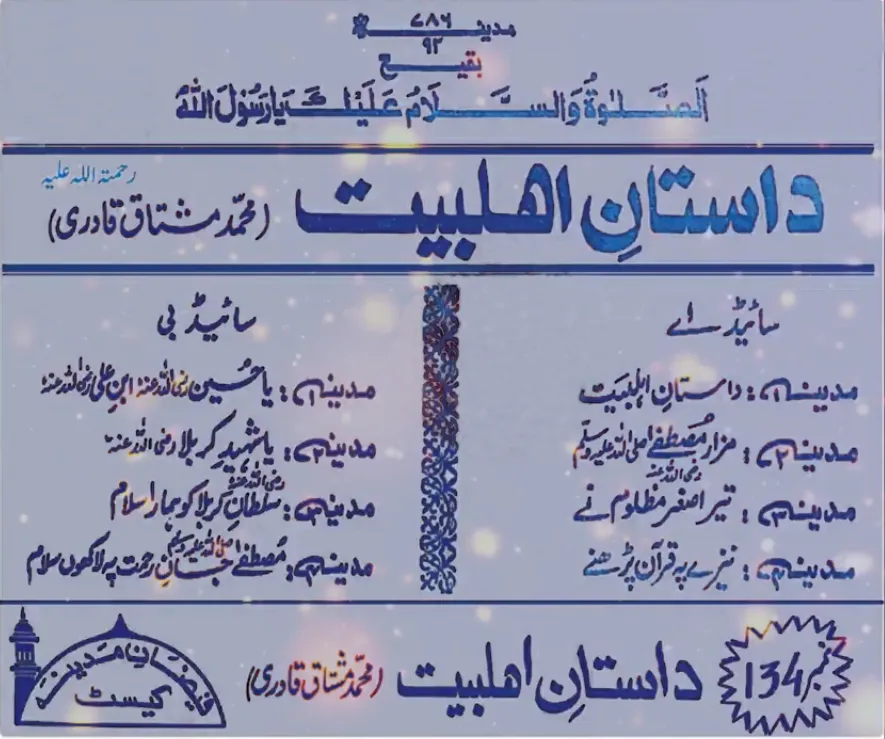 ۷۸۶
مدینہ
۹۲
بقیع
اَلصَّلٰوۃُ وَالسَّلَامُ عَلَیْكَ یَا رَسُوْلَ اللہ
داستانِ اھلبیت (محمّد مشتاق قادری) رحمتہ اللہ علیہ
سائیڈ اے
مدینہ۱: داستانِ اہلبیت
مدینہ۲: مزارِ مُصطفےٰ صلی اللہ علیہ وسلم
مدینہ۳: تیر اصغر رضی اللہ عنہ مظلوم نے
مدینہ۴: نیزے پہ قرآن پڑھنے
سائیڈ بی
مدینہ۱: یا حُسین رضی اللہ عنہ ابنِ علی رضی اللہ عنہ
مدینہ۲: یا شہیدِ کربلا رضی اللہ عنہ
مدینہ۳: سلطانِ کربلا رضی اللہ عنہ کو ہمارا سلام
مدینہ۴: مُصطفےٰ صلی اللہ علیہ وسلم جانِ رحمت پہ لاکھوں سلام
نمبر 134
داستانِ اھلبیت (محمّد مشتاق قادری)
فیضانِ مدینہ
کیسٹ